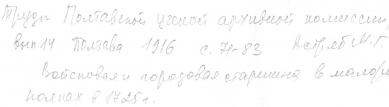 Труды Полтавской ученой архивной комиссии,
вып. 14 Полтава 1916 с. 71-83 М.Г.
Войсковая и городовая старшина в малорос.
полках в 1725 г.